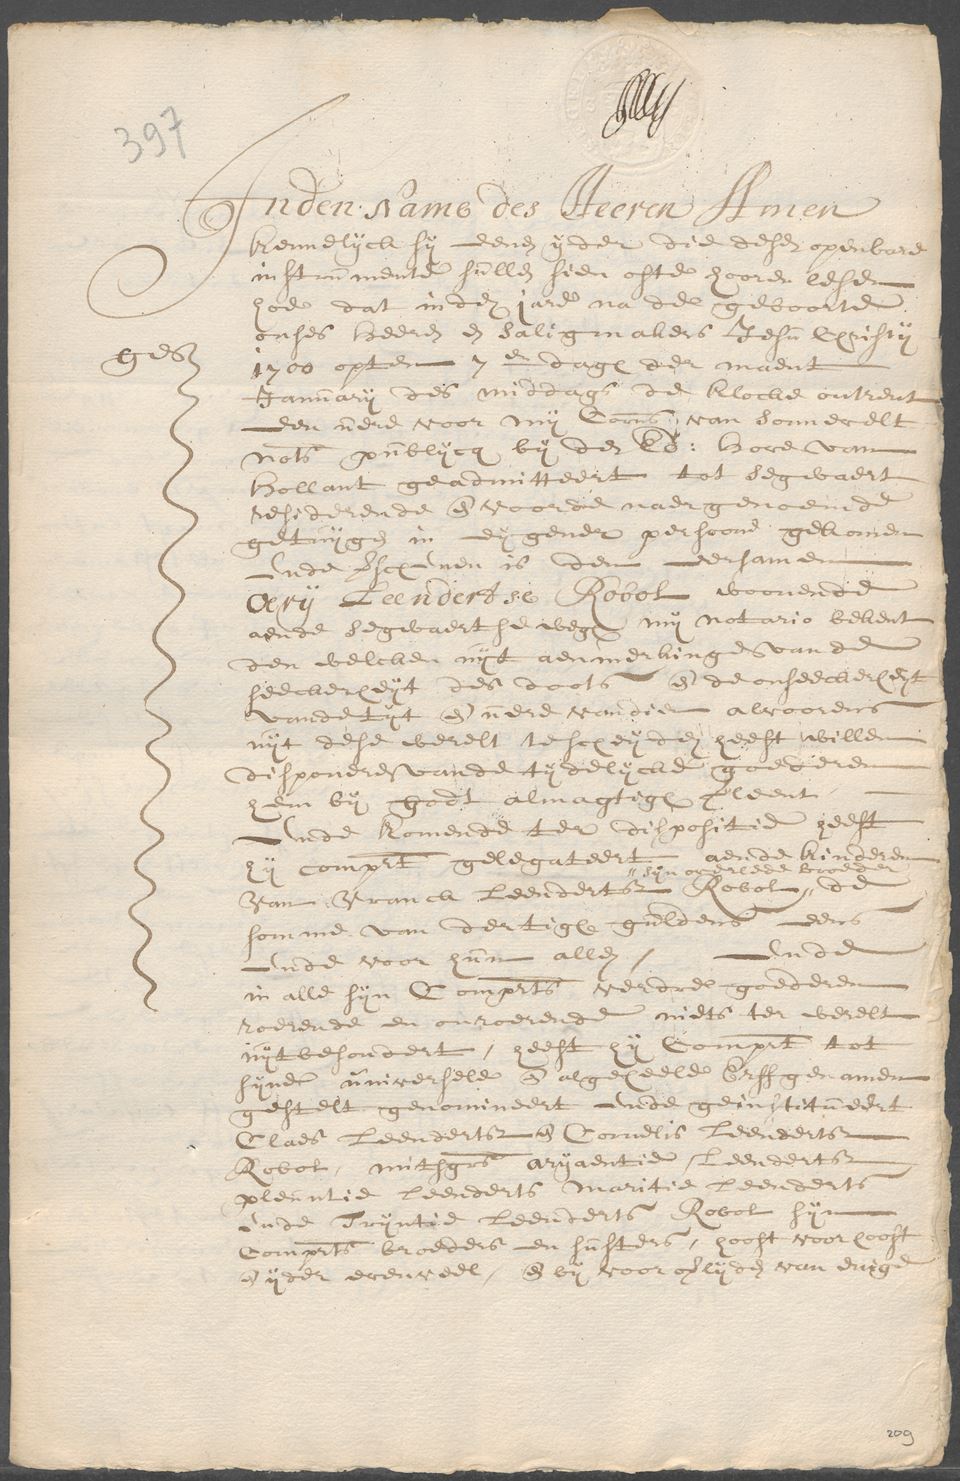 397
In den Name des Heeren Amen
kennelyck sy eenen yder die desen openbare
instrumente sullen sien ofte hooren lesen
hoe dat in den jare na de geboorte
onses heeren en Saligmakers Jesu Christy
gest
1700 opten 7 en dage der maent
January des middags de klocke ontrent
een uere voor my Corns. van Sonnevelt
nots publycq by den Ed: hove van
hollant geadmitteert tot Segwaert
residerende en voor de naergenoemde
getuygen in eygener persoone gekomen
ende erschenen is den eersamen
Ary Leendertse Robol woonende
aende Segwaertse wege my notario bekent
den welcken uyt aenmerkinge vande
seeckerheyt des doots en de onseeckerheyt
vande tyt en uere van dien alvoorens
uyt dese werelt te scheyden heeft willen
disponeren vande tydelycke goederen
hem by godt almagtigh verleent
Ende komende ter dispositie heeft
hy comprt gelegateert aende kinderen
van Vranck Leenderts Robol de
syn overlede broeder
somme van dertigh guldens eens
ende voor hun allen / Ende
in alle syn Comprts verdre goederen
roerende en onroerende niets ter werelt
uytbesondert, heeft hy Comprt tot
syne universele en algeheele Erffgenamen
gestelt genomineert ende geinstitueert
Claes Leenderts en Cornelis Leenderts
Robol, mitsgrs Aryaentie Leenderts
pleuntie Leenderts Maritie Leenderts
ende Tryntie Leenderts Robol syn
Comprts broeders en susters, hooft voor hooft
en yder evenveel, en by vooroverlyden van enige
209